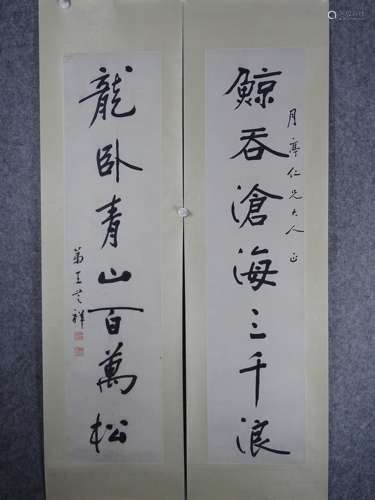 月亭仁兄大人正
鯨吞滄海三千浪
龍卧青山百萬松
弟王芝祥